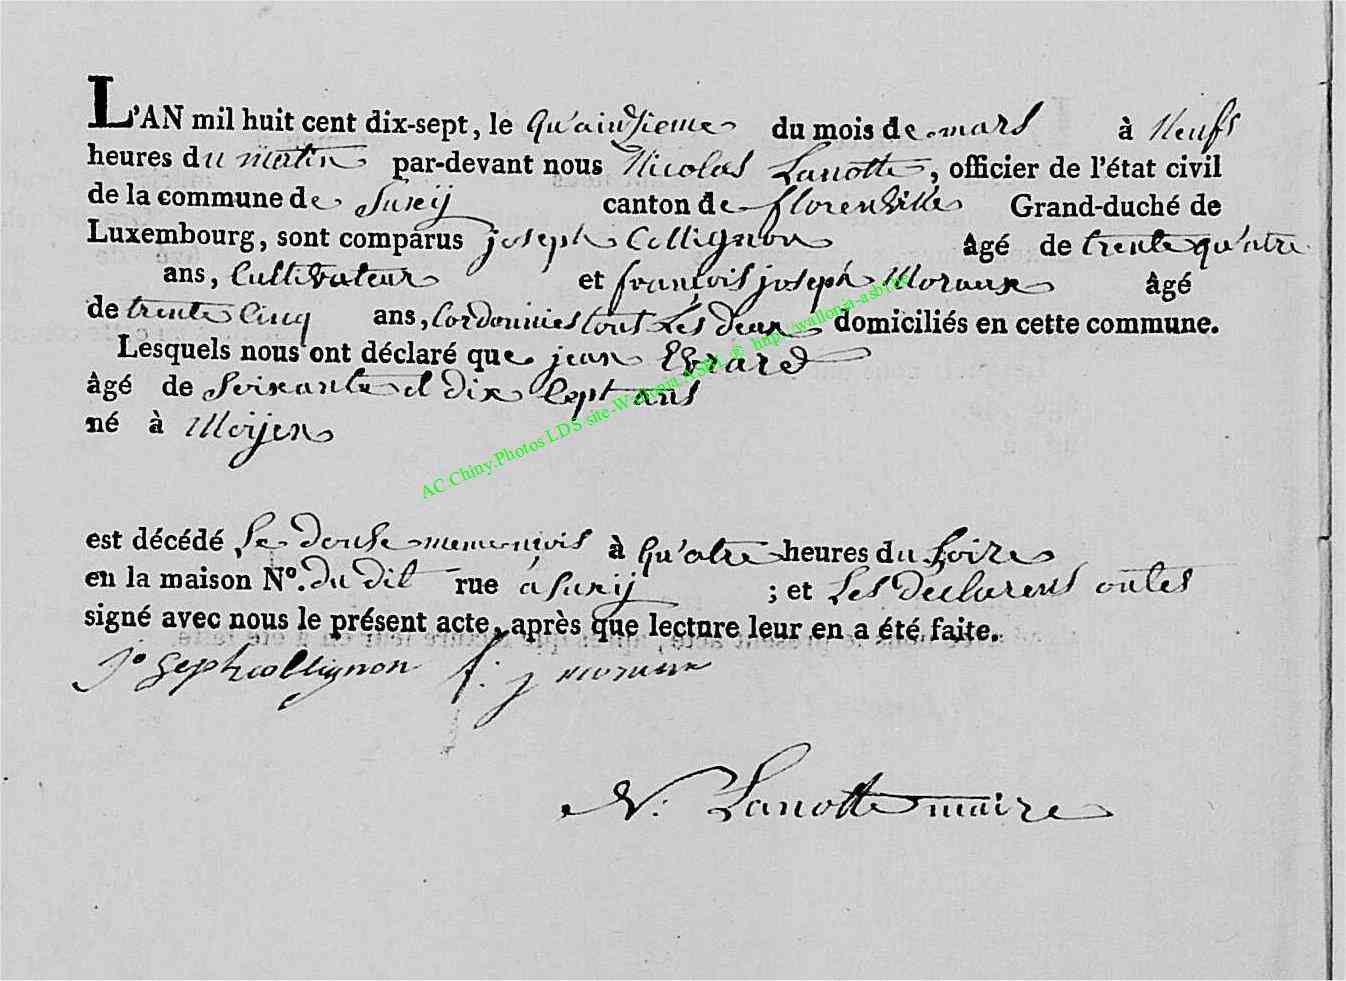 L'AN mil huit cent dix-sept, le qu'ainsieme du mois de mars à Neufs
heures du matin par-devant nous Nicolas Lanotte, officier de l'état civil
de la commune de Suxÿ canton de florenville Grand-duché de
Luxembourg, sont comparus joseph Collignon âgé de trente qu'atre
ans, Cultivateur et françois joseph Moraux âgé
de trente Cinq ans, Cordonnies tout Les deux domiciliés en cette commune.
Lesquels nous ont déclaré que jean Evrard
âgé de Soixante et dix Sept ans
né à Moÿen
AC.Chiny.Photos LDS site-Wallonia ASBL @ http: wallonia-asbl.be
est décédé Le douse meme mois à qu'atre heures du Soire
en la maison N°. du dit rue à Suxÿ ; et Les declarens ontes
signé avec nous le présent acte, après que lecture leur en a été faite.
Joseph collignon f: j moraux
N: Lanotte maire